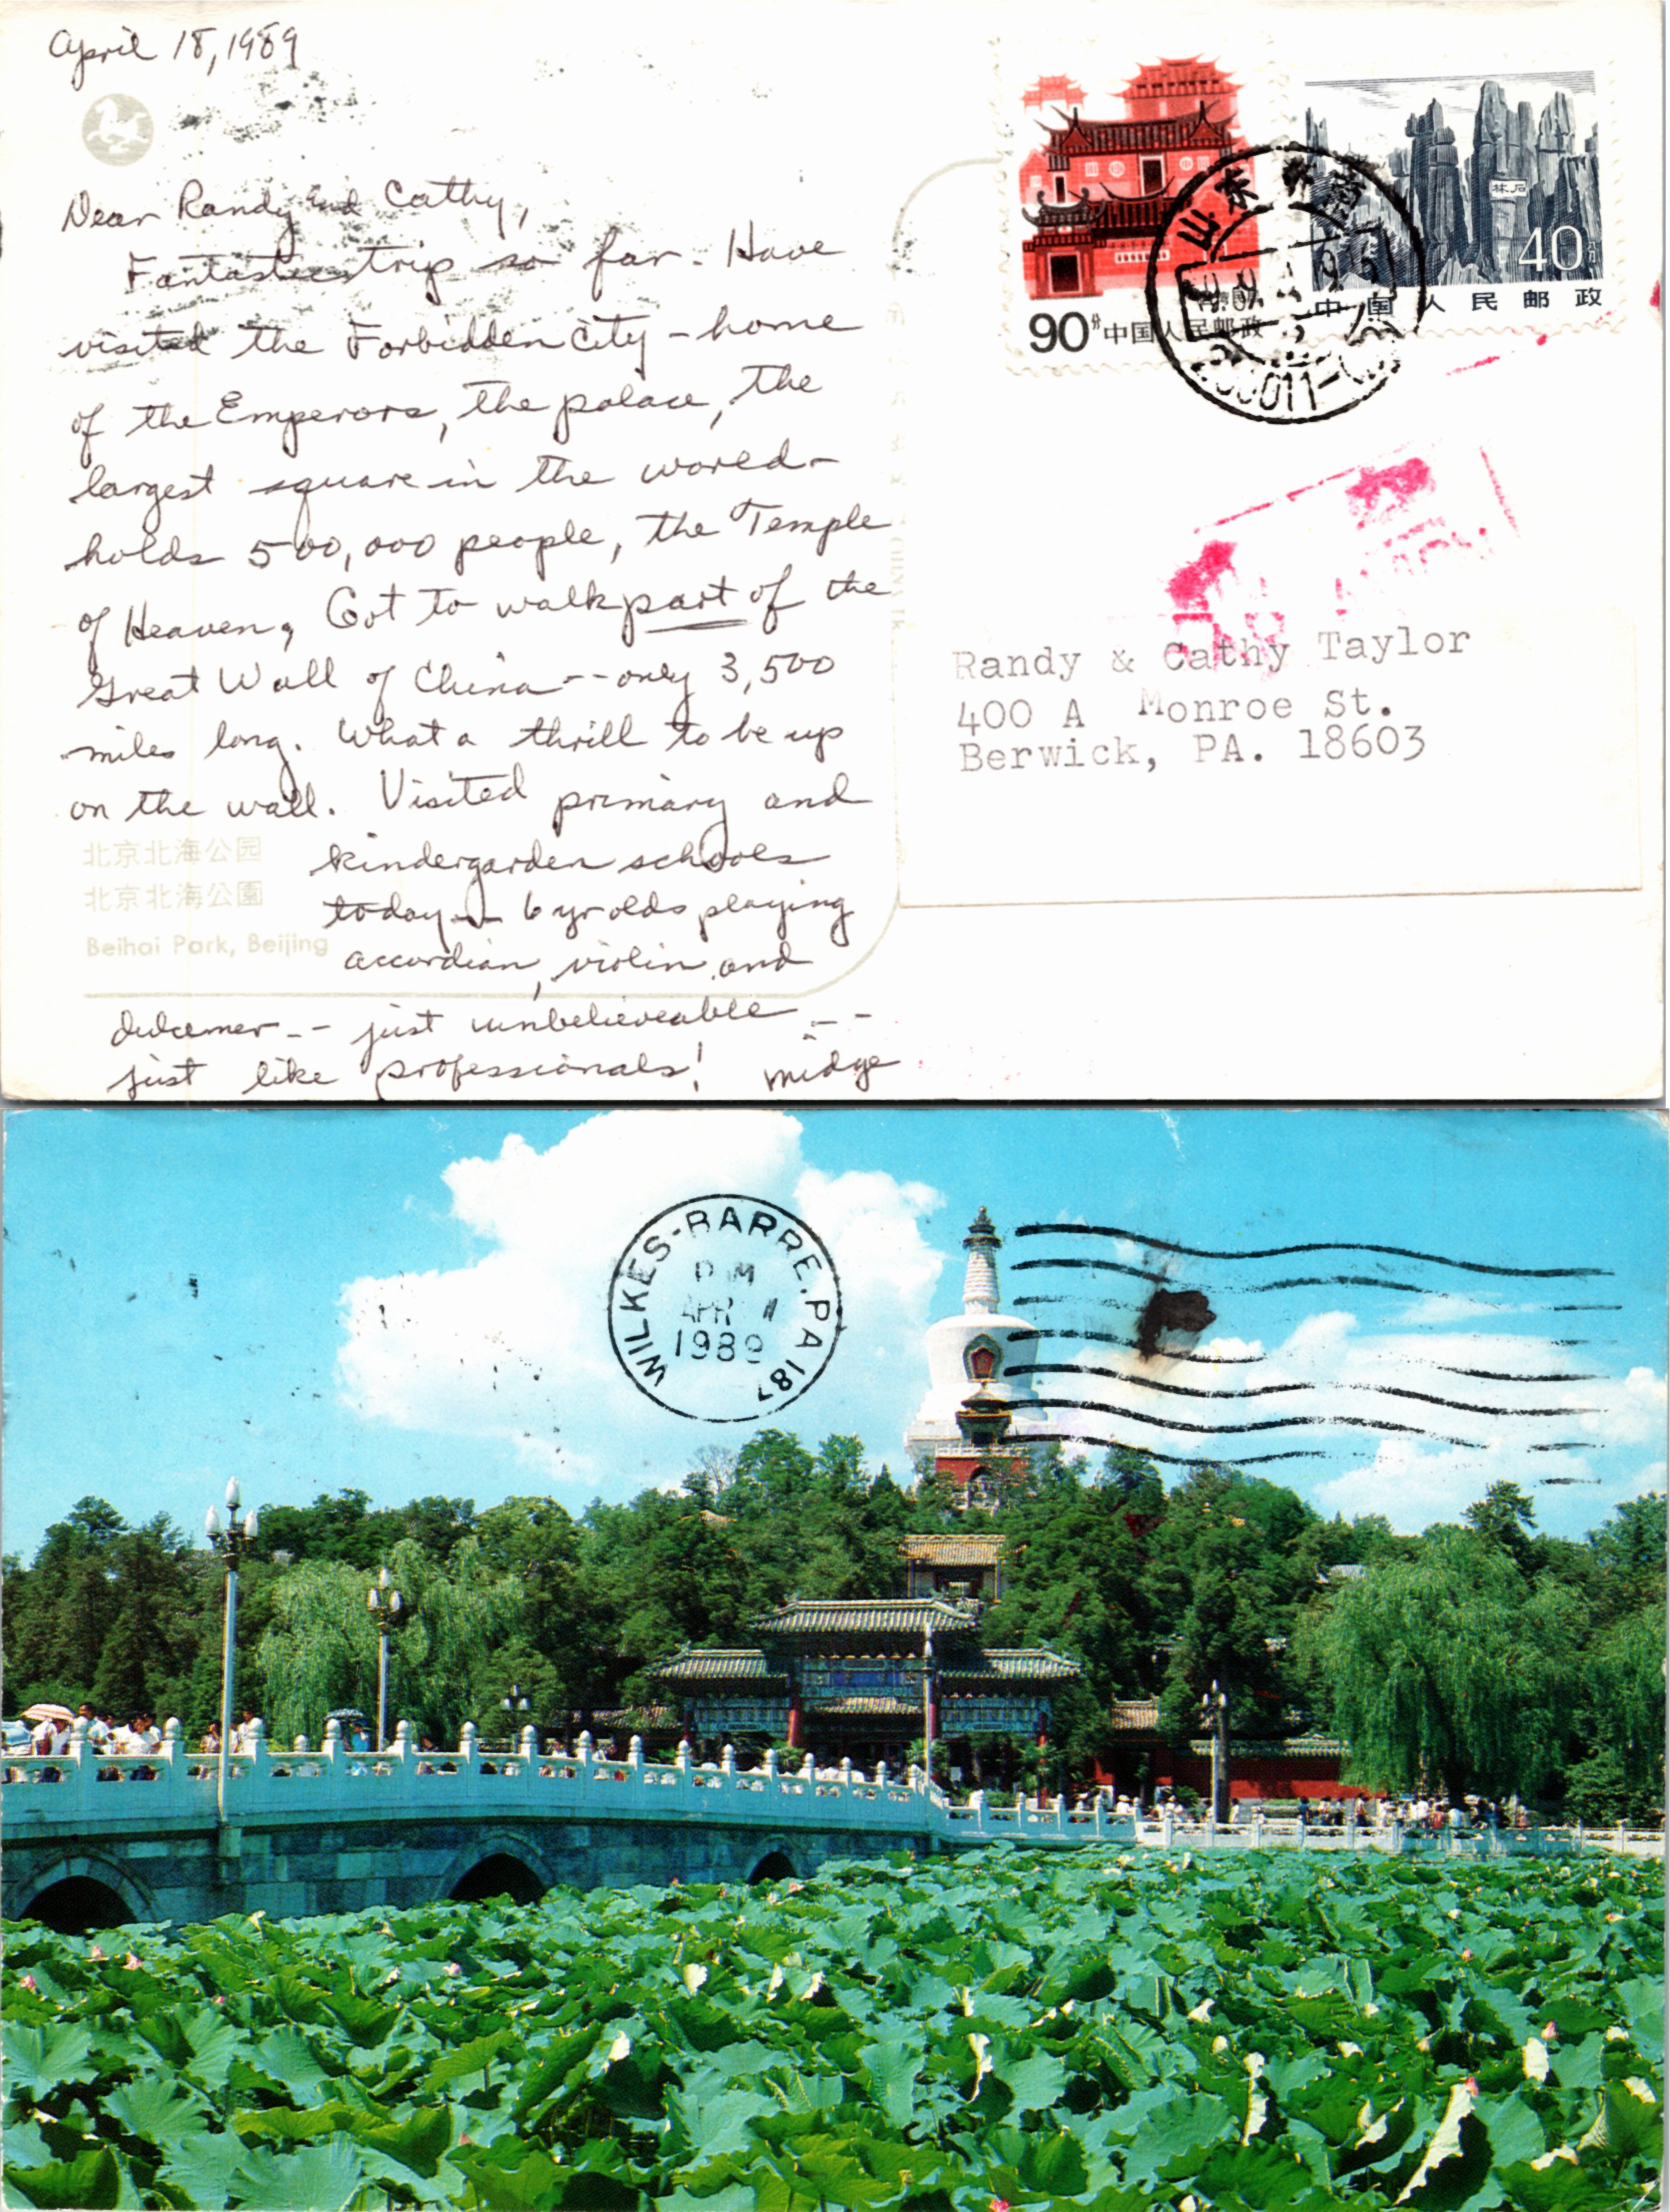 April 18, 1989
Dear Randy and Cathy,
Fantastic trip so far. Have
visited the Forbidden City - home
of the Emperors, the palace, the
largest square in the world -
holds 500,000 people, the Temple
of Heaven, Got to walk part of the
Great Wall of China -- only 3,500
miles long. What a thrill to be up
on the wall. Visited primary and
kindergarden schools
today -- 6 yr olds playing
accordian, violin, and
dulcemer -- just unbelieveable --
just like professionals! Midge
北京北海公园
北京北海公園
Beihai Park, Beijing
90分 中国人民邮政
石林
40分
中国人民邮政
山东
Randy & Cathy Taylor
400 A Monroe St.
Berwick, PA. 18603
WILKES-BARRE, PA 187
PM
APR
1989